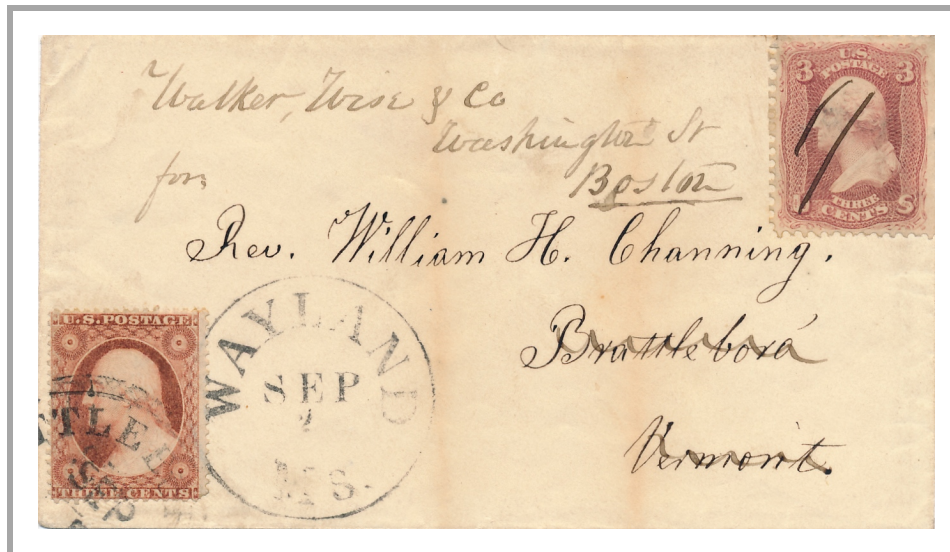 Walker, Wise & Co
Washington St
Boston
for
Rev. William H. Channing.
Brattleboro
Vermont.
U.S. POSTAGE
3 3
THREE CENTS
U.S. POSTAGE
THREE CENTS
WAYLAND
SEP
MS.
TTLEB
SEP